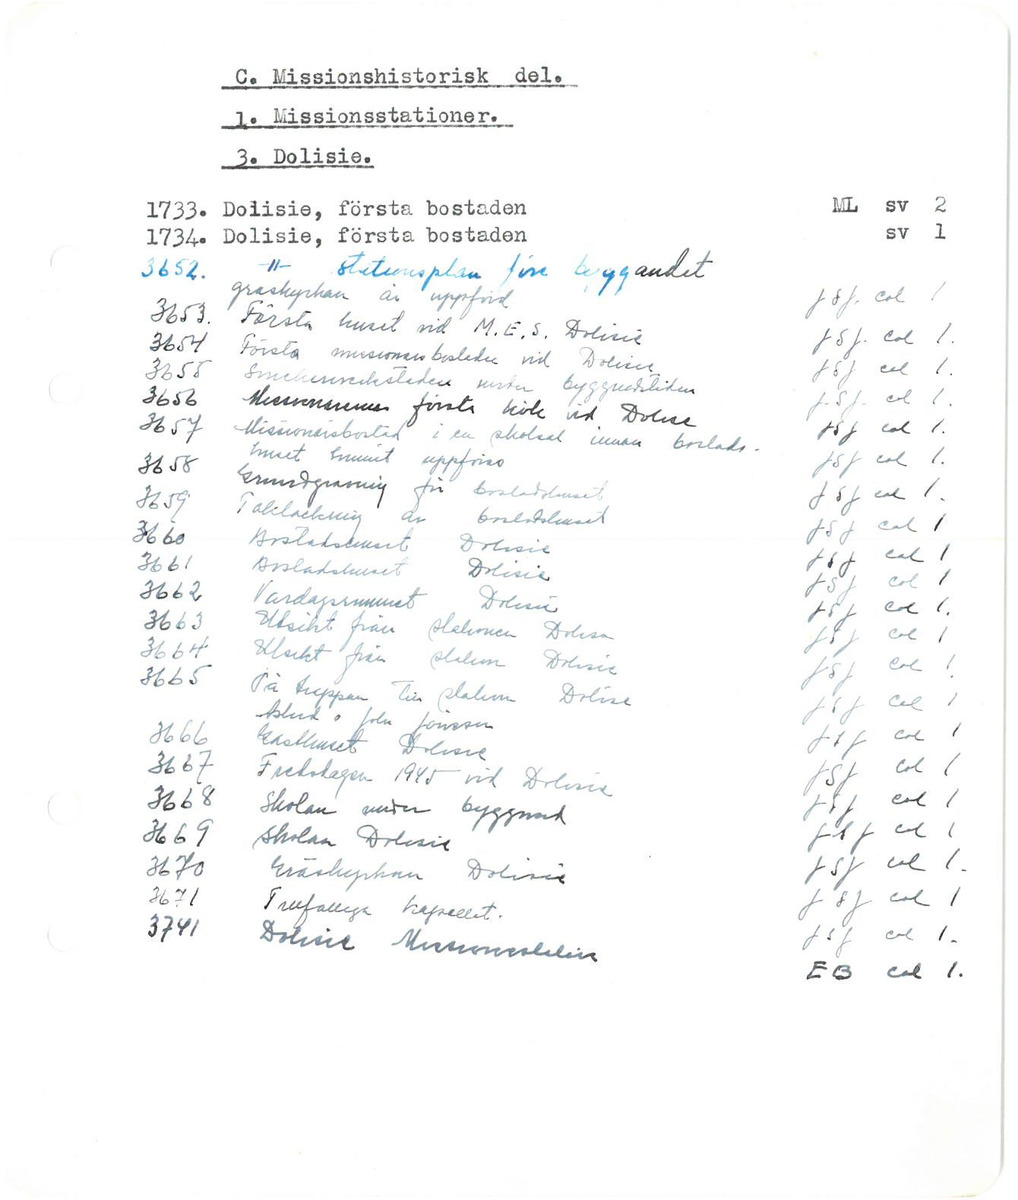 C. Missionshistorisk del.
1. Missionsstationer.
3. Dolisie.
1733. Dolisie, första bostaden ML sv 2
1734. Dolisie, första bostaden sv 1
3652. -"- stationsplan före byggandet
gräskyrkan är uppförd JSJ. col 1
3653. Första huset vid M.E.S. Dolisie JSJ. col 1.
3654 Första missionsbostaden vid Dolisie JSJ col 1.
3655 Snickeriverkstaden under byggnadstiden JSJ. col 1.
3656 första kök vid Dolisie JSJ col 1.
3657 Missionsbostad i en skolsal innan bostads-
huset hunnit uppföras JSJ col 1.
3658 Grundgrävning för bostadshuset JSJ col 1.
3659 Takläckning av bostadshuset JSJ col 1
3660 Bostadshuset Dolisie JSJ col 1
3661 Bostadshuset Dolisie JSJ col 1
3662 Vardagsrummet Dolisie JSJ col 1.
3663 Utsikt från stationen Dolisie JSJ col 1
3664 Utsikt från station Dolisie JSJ col 1.
3665 På trappan till station Dolisie JSJ col 1
o John Jönsson
3666 Gästhuset Dolisie JSJ col 1
3667 Fredsdagen 1945 vid Dolisie JSJ col 1
3668 Skolan under byggnad JSJ col 1.
3669 Skolan Dolisie JSJ col 1
3670 Gräskyrkan Dolisie JSJ col 1.
3671 kapellet. JSJ col 1
3741 Dolisie Missionsstation JSJ col 1.
EB col 1.